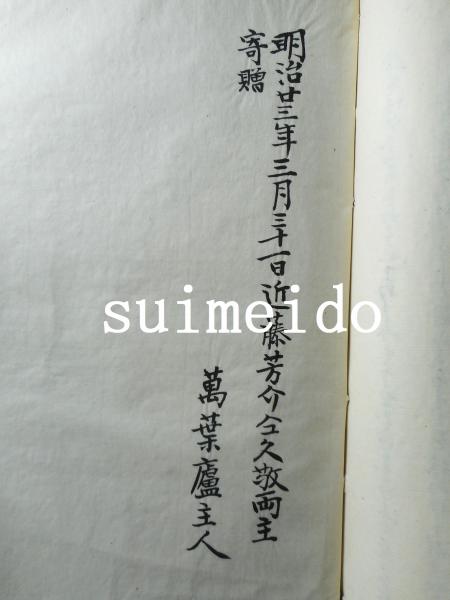 明治廿三年三月三十一日近藤芳介仝久敬両主
寄贈
萬葉廬主人
suimeido